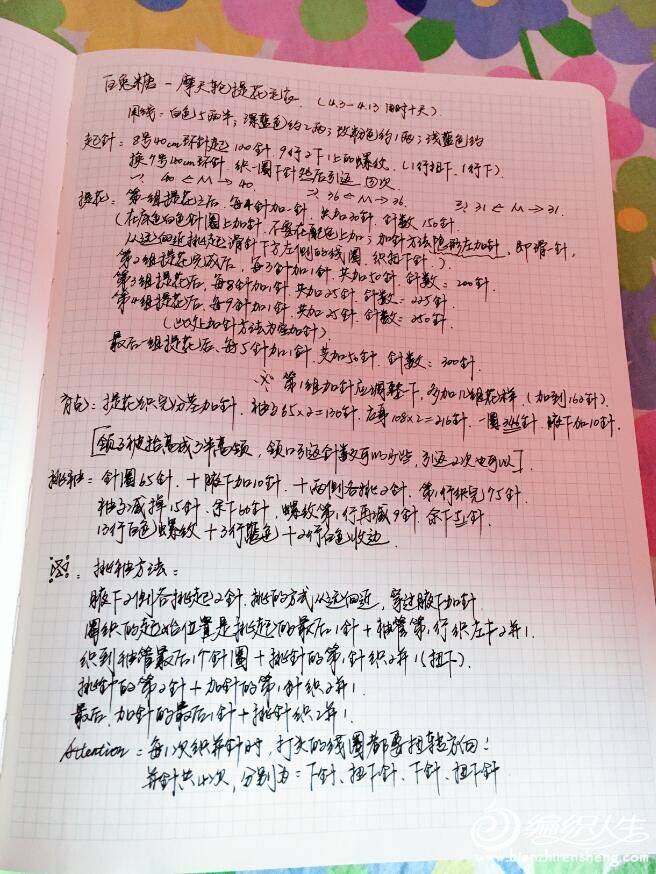 白兔糖－摩天轮提花毛衣.（4.3－4.13 用时十天）
用线：白色5两半；深蓝色约2两；玫粉色约1两；浅蓝色约
起针：8号40cm环针起100针.9行2下1上的螺纹.（1行扭下.1行下）
换7号40cm环针.织一圈下针然后引返 回次.
→ 40 ← M → 40. 2> 36 ← M → 36. 3> 31 ← M → 31.
提花：第一组提花之后.每4针加一针.共加30针.针数150针.
（在底色白色针圈上加针.不要在配色上加；加针方法隐形左加针，即滑一针，
从远向近挑起滑针下方左侧的线圈.织扭下针.）
第2组提花完成后，每3针加1针.共加50针.针数：200针.
第3组提花后，每8针加1针.共加25针.针数：225针.
第4组提花后.每9针加1针.共加25针.针数：250针.
（以上加针方法为空加针）
最后一组提花后、每5针加1针.共加50针.针数：300针.
※ 第1组加针应调整一下，多加几组花样.（加到160针）.
育克：提花织完分差加针.袖子65×2=130针.应身108×2=216针.一圈346针.腋下加10针.
[领子被抬高成了半高领，领口引返针数可以少些，引返2次也可以].
挑袖：针圈65针.＋腋下加10针.＋两侧各挑2针.第1行织完75针.
袖子减掉15针.余下60针.螺纹第1行再减9针.余下51针.
13行白色螺纹＋3行蓝色＋2行白色收边.
※：挑袖方法：
腋下2侧各挑起2针.挑的方式从远向近，穿过腋下加针.
圈织的起始位置是挑起的最后1针＋袖管第1行织左上2并1.
织到袖管最后1个针圈＋挑针的第1针织2并1（扭下）.
挑针的第2针＋加针的第1针织2并1.
最后.加针的最后1针＋挑针织2并1.
Attention：每1次织并针时，打头的线圈都要扭转方向！
并针共4次，分别为：下针、扭下针、下针、扭下针
编织人生
www.bianzhirensheng.com